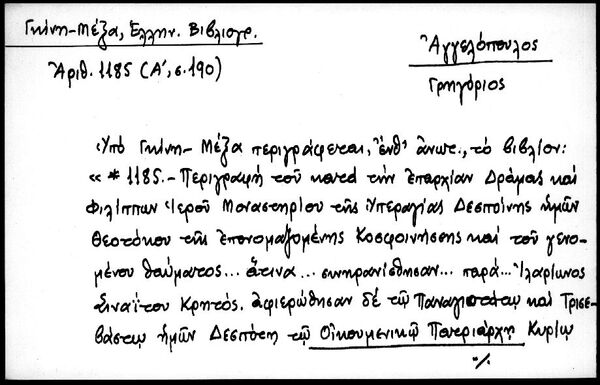 Γκίνη-Μέξα, Ἑλλην. Βιβλιογρ.
Ἀριθ. 1185 (Α', σ. 190)
Ἀγγελόπουλος
Γρηγόριος
Ὑπὸ Γκίνη - Μέξα περιγράφεται, ἔνθ' ἀνωτ., τὸ βιβλίον:
«* 1185.- Περιγραφὴ τοῦ κατὰ τὴν ἐπαρχίαν Δράμας καὶ
Φιλίππων Ἱεροῦ Μοναστηρίου τῆς Ὑπεραγίας Δεσποίνης ἡμῶν
Θεοτόκου τῆς ἐπονομαζομένης Κοσφοινήσσης καὶ τοῦ γενο-
μένου θαύματος... ἅτινα... συνηρανίσθησαν... παρὰ... Ἱλαρίωνος
Σιναΐτου Κρητός, ἀφιερώθησαν δὲ τῷ Παναγιωτάτῳ καὶ Τρισε-
βάστῳ ἡμῶν Δεσπότῃ τῷ Οἰκουμενικῷ Πατριάρχῃ Κυρίῳ
./.